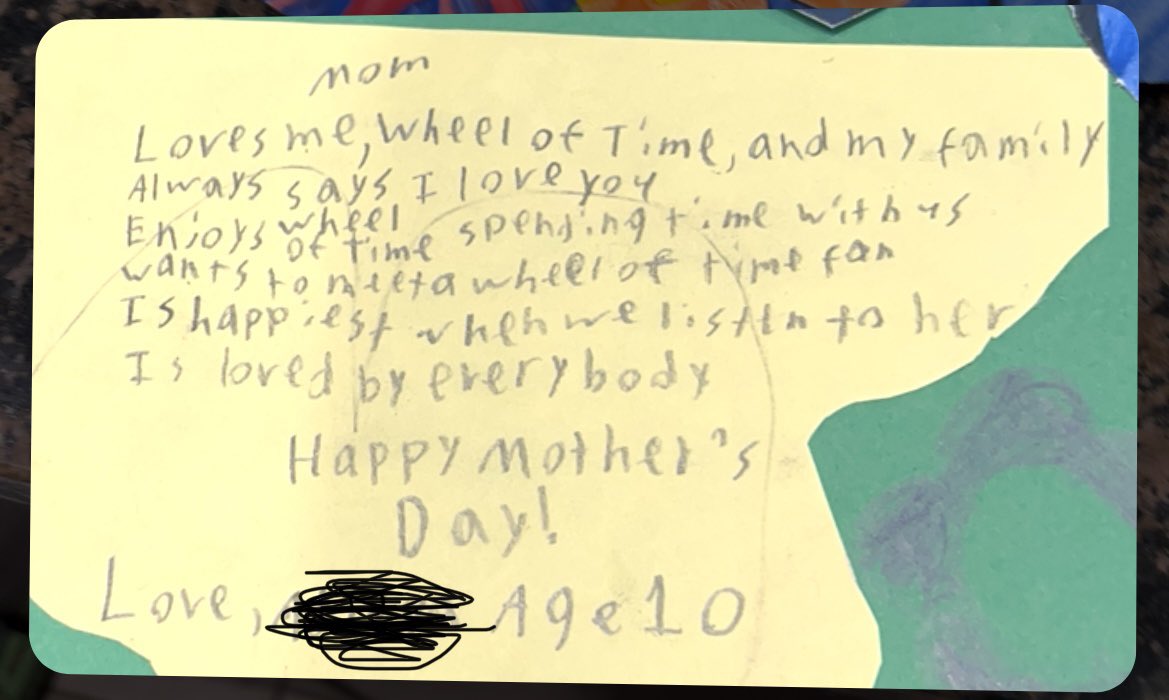 Mom
Loves me, Wheel of Time, and my family
Always says I love you
Enjoys wheel of time spending time with us
wants to meet a wheel of time fan
Is happiest when we listen to her
Is loved by everybody
Happy Mother's
Day!
Love, Age 10